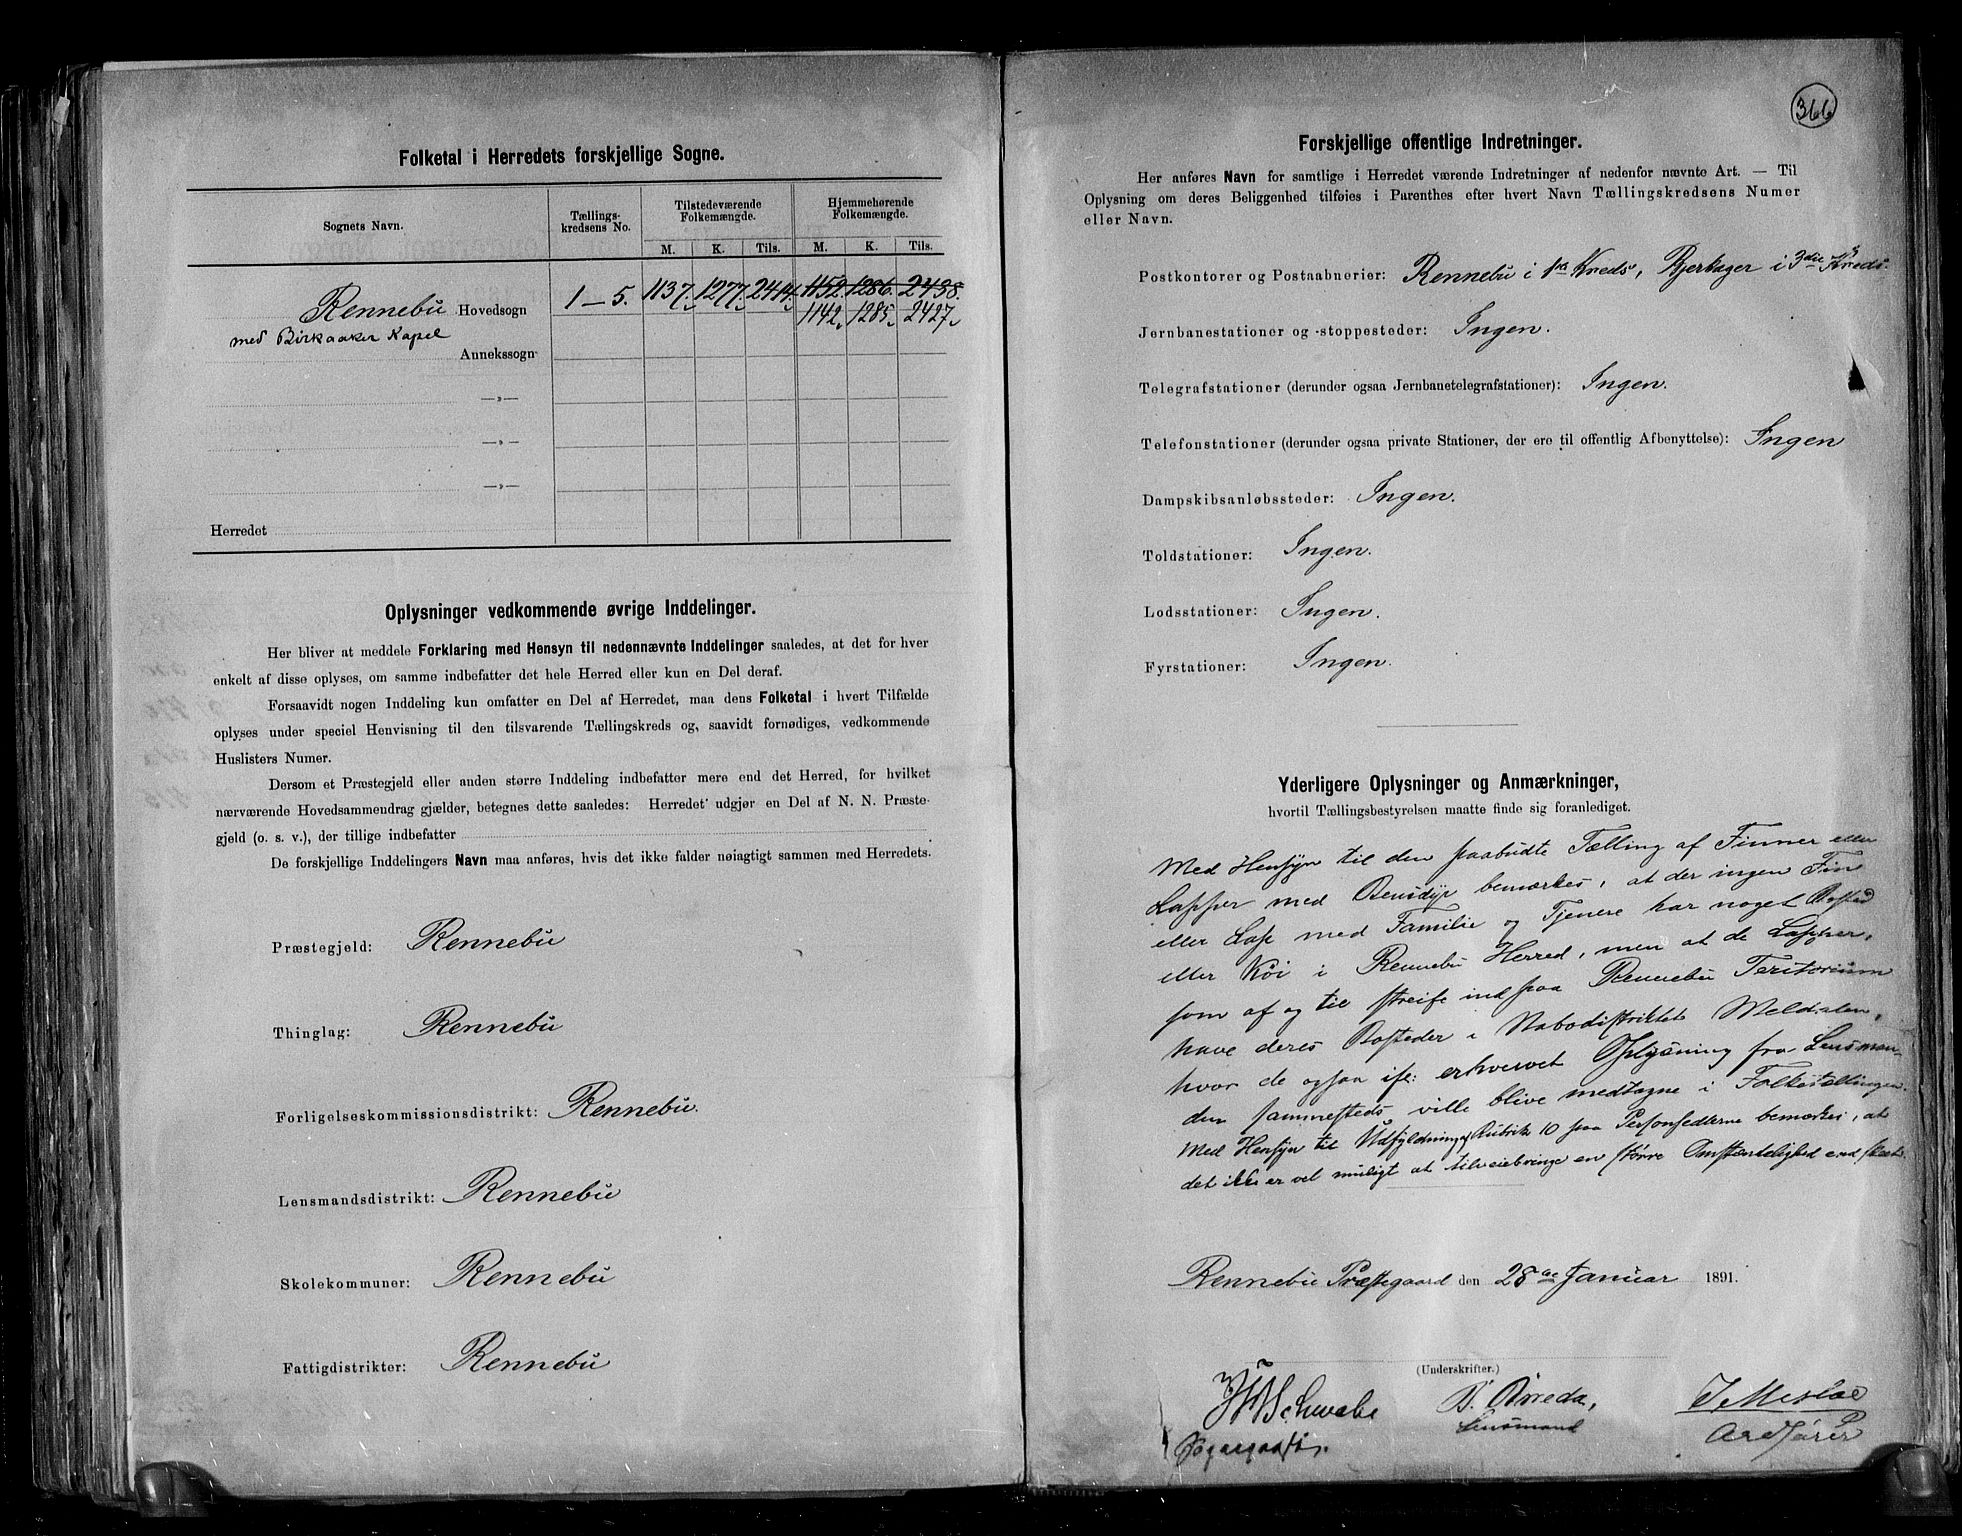 Folketal i Herredets forskjellige Sogne.
Sognets Navn. Tællings- kredsens No. Tilstedeværende Folkemængde. Hjemmehørende Folkemængde.
M. K. Tils. M. K. Tils.
Rennebu Hovedsogn 1–5. 1137. 1277. 2414. 1152. 1286. 2438.
1142. 1285. 2427.
med Birkaaker Kapel
Annekssogn
—»—
—»—
—»—
Herredet
Oplysninger vedkommende øvrige Inddelinger.
Her bliver at meddele Forklaring med Hensyn til nedennævnte Inddelinger saaledes, at det for hver
enkelt af disse oplyses, om samme indbefatter det hele Herred eller kun en Del deraf.
Forsaavidt nogen Inddeling kun omfatter en Del af Herredet, maa dens Folketal i hvert Tilfælde
oplyses under speciel Henvisning til den tilsvarende Tællingskreds og, saavidt fornødiges, vedkommende
Huslisters Numer.
Dersom et Præstegjeld eller anden større Inddeling indbefatter mere end det Herred, for hvilket
nærværende Hovedsammendrag gjælder, betegnes dette saaledes: Herredet udgjør en Del af N. N. Præste-
gjeld (o. s. v.), der tillige indbefatter
De forskjellige Inddelingers Navn maa anføres, hvis det ikke falder nøiagtigt sammen med Herredets.
Præstegjeld: Rennebu
Thinglag: Rennebu
Forligelseskommissionsdistrikt: Rennebu.
Lensmandsdistrikt: Rennebu
Skolekommuner: Rennebu
Fattigdistrikter: Rennebu
366
Forskjellige offentlige Indretninger.
Her anføres Navn for samtlige i Herredet værende Indretninger af nedenfor nævnte Art. — Til
Oplysning om deres Beliggenhed tilføies i Parenthes efter hvert Navn Tællingskredsens Numer
eller Navn.
Postkontorer og Postaabnerier: Rennebu i 1ste Kreds, Bjerkager i 3die Kreds.
Jernbanestationer og -stoppesteder: Ingen.
Telegrafstationer (derunder ogsaa Jernbanetelegrafstationer): Ingen.
Telefonstationer (derunder ogsaa private Stationer, der ere til offentlig Afbenyttelse): Ingen
Dampskibsanløbssteder: Ingen.
Toldstationer: Ingen.
Lodsstationer: Ingen.
Fyrstationer: Ingen.
Yderligere Oplysninger og Anmærkninger,
hvortil Tællingsbestyrelsen maatte finde sig foranlediget.
Med Hensyn til den paabudte Tælling af Finner eller
Lapper med Rensdyr bemærkes, at der ingen Fin
eller Lap med Familie og Tjenere har noget Bosted
eller Køi i Rennebu Herred, men at de Lapper,
som af og til streife ind paa Rennebu Teritorium
have deres Bosteder i Nabodistriktet Meldalen,
hvor de ogsaa if: erhvervet Oplysning fra Lensman-
den sammesteds ville blive medtagne i Folketællingen.
Med Hensyn til Udfyldning af Rubrik 10 paa Personsedlerne bemærkes, at
det ikke er vel muligt at tilveiebringe en større Omstændelighed end skeet.
Rennebu Præstegaard den 28de Januar 1891.
(Underskrifter.)
Schwabe
Sogneprest. B. Orreda,
Lensmand
Ordfører